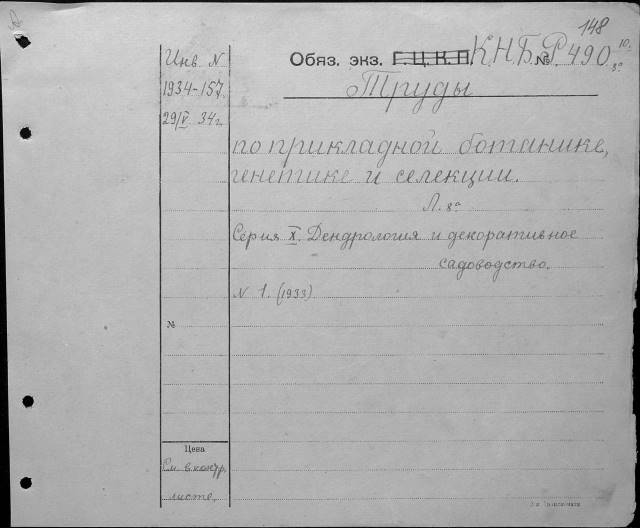 148
Инв. N
1934-157.
29/V. 34г.
Обяз. экз. Г.Ц.К.П. КНБ № Р490 10. 3º
Труды
по прикладной ботанике,
генетике и селекции.
Л. 8º
Серия X. Дендрология и декоративное
садоводство.
N 1. (1933)
№
Цена
См. в контр.
листе.